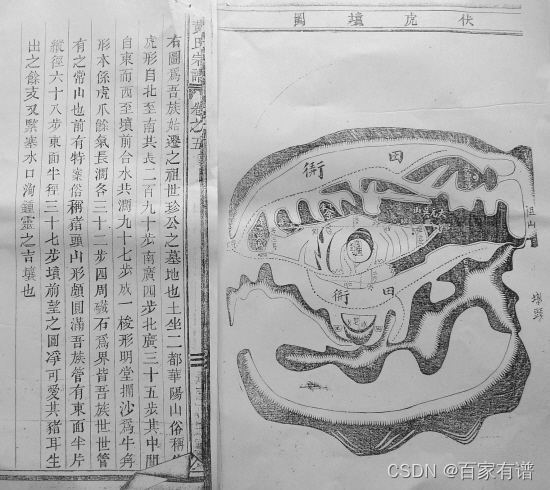 伏虎墳圖
衕田
衕田
祖山
墳
氏宗譜 卷之五
右圖爲吾族始遷之祖世珍公之墓地也土坐二都華陽山俗稱
虎形自北至南共長二百九十步南廣四步北廣三十五步其中間
自東而西至墳前合水共濶九十七步成一梭形明堂攔沙爲牛角
形本係虎爪餘氣長濶各三十二步四周礙石爲界皆吾族世世管
有之常山也前有特案俗稱猪頭山形頗圓滿吾族管有東面半片
縱徑六十八步東面半徑三十七步墳前望之圓淨可愛其猪耳生
出之餘支又緊塞水口洵鍾靈之吉壤也
CSDN @百家有谱